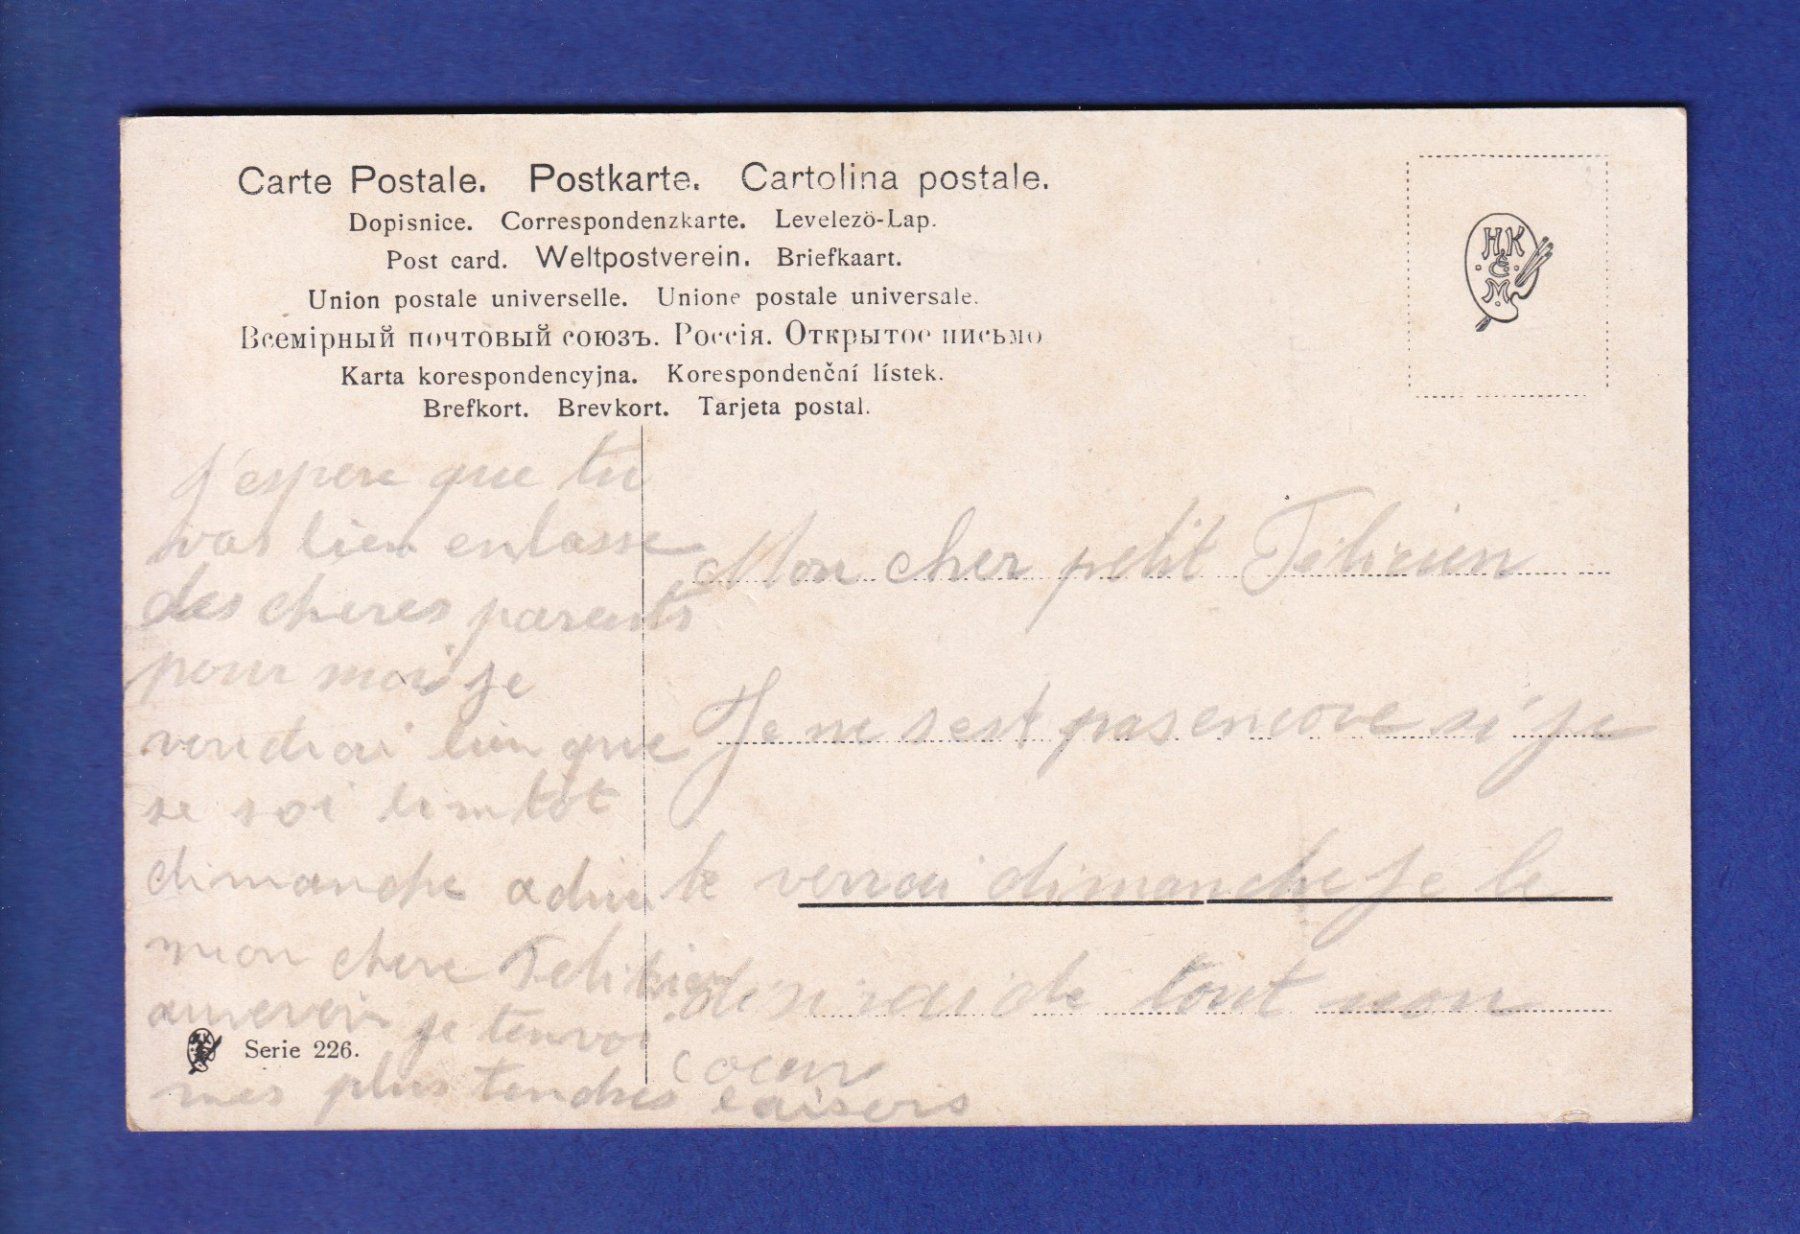 Carte Postale. Postkarte. Cartolina postale.
Dopisnice. Correspondenzkarte. Levelezö-Lap.
Post card. Weltpostverein. Briefkaart.
Union postale universelle. Unione postale universale.
Всемірный почтовый союзъ. Россія. Открытое письмо
Karta korespondencyjna. Korespondenční lístek.
Brefkort. Brevkort. Tarjeta postal.
HK
&
M
Mon cher petit Félicien
Je ne sest pas encore si je
te verrai dimanche Je le
desirai de tout mon
coeur
J'espere que tu
vas bien
des cheres parents
pour moi je
voudrai bien que
se soi bientot
dimanche adieu
mon chere Felicien
aurevoir je tenvoi
mes plus tendres baisers
Serie 226.